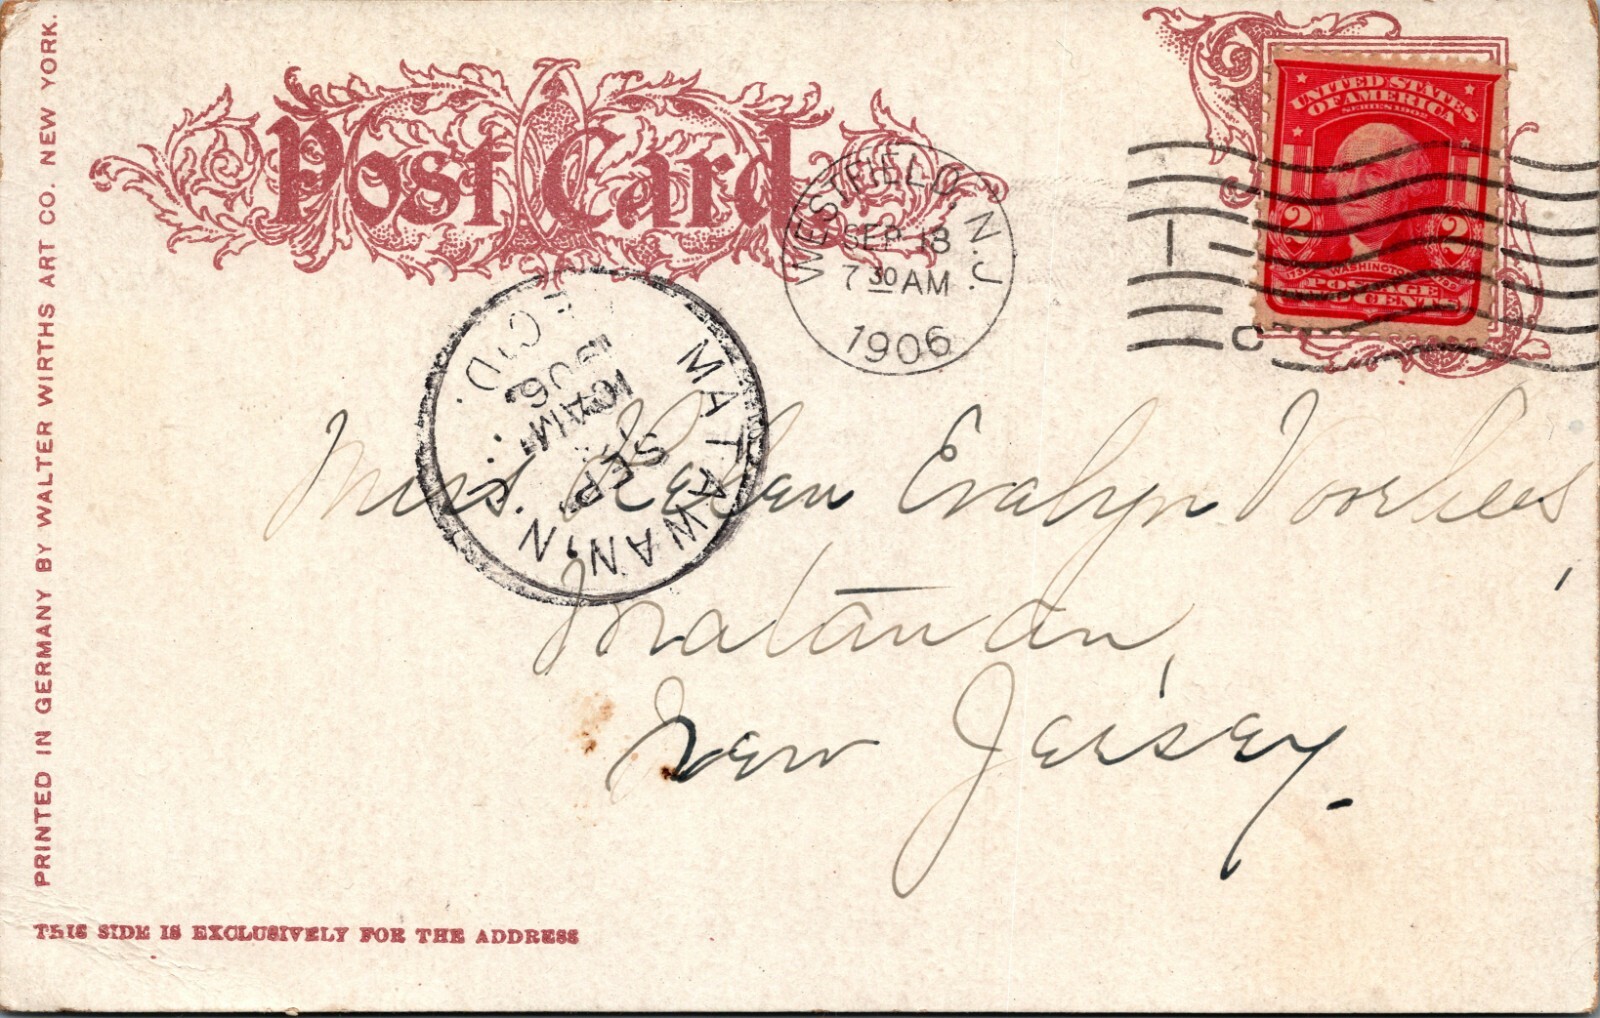 Post Card
PRINTED IN GERMANY BY WALTER WIRTHS ART CO. NEW YORK.
WESTFIELD, N.J.
SEP 18
7 30 AM
1906
UNITED STATES
OF AMERICA
SERIES 1902
2 2
WASHINGTON
POSTAGE
CENTS
C
MATAWAN, N.J.
REC'D.
SEP
10 AM
06
Miss. Helen Evalyn Voorhees,
Matawan,
New Jersey.
THIS SIDE IS EXCLUSIVELY FOR THE ADDRESS